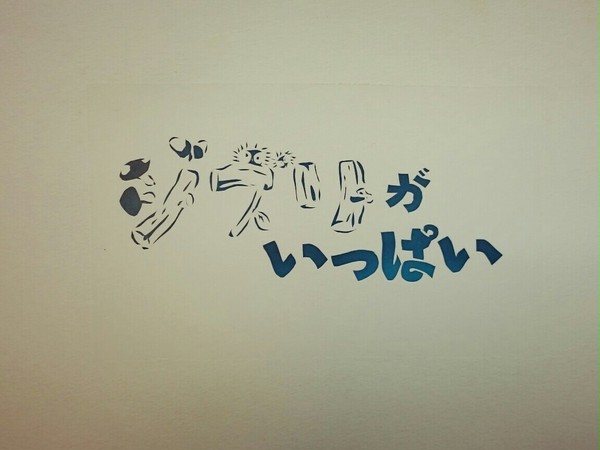 ジブリが
いっぱい